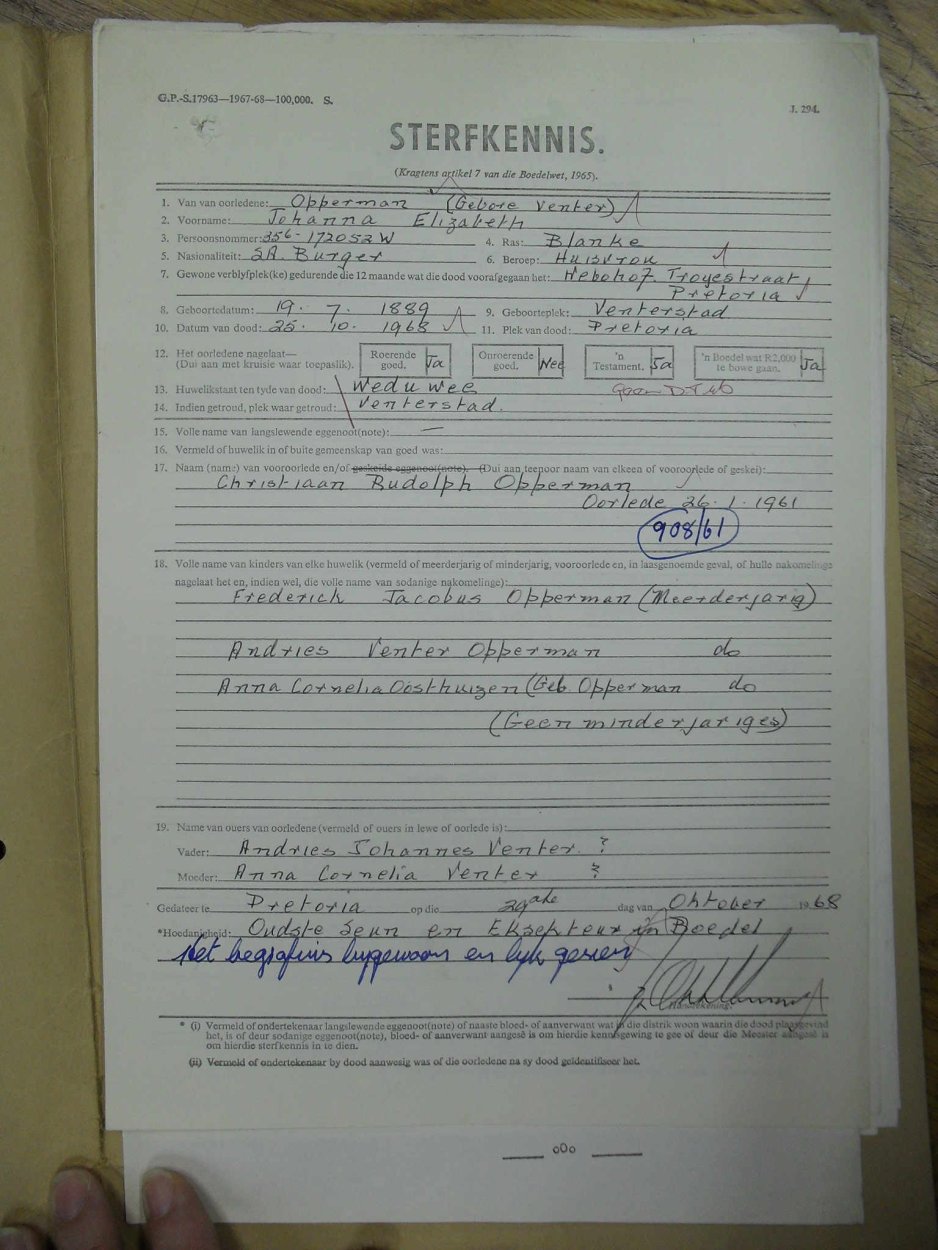 G.P.-S.17963—1967-68—100,000. S.
J. 294.
STERFKENNIS.
(Kragtens artikel 7 van die Boedelwet, 1965).
1. Van van oorledene: Opperman (Gebore Venter)
2. Voorname: Johanna Elizabeth
3. Persoonsnommer: 356-172052W 4. Ras: Blanke
5. Nasionaliteit: SA. Burger 6. Beroep: Huisvrou
7. Gewone verblyfplek(ke) gedurende die 12 maande wat die dood voorafgegaan het: Hebohof. Troyestraat
Pretoria
8. Geboortedatum: 19. 7. 1889 9. Geboorteplek: Venterstad
10. Datum van dood: 25. 10. 1968 11. Plek van dood: Pretoria
12. Het oorledene nagelaat— Roerende goed. Ja Onroerende goed. Nee 'n Testament. Ja 'n Boedel wat R2,000 te bowe gaan. Ja
(Dui aan met kruisie waar toepaslik).
13. Huwelikstaat ten tyde van dood: Weduwee
14. Indien getroud, plek waar getroud: Venterstad.
15. Volle name van langslewende eggenoot(note): —
16. Vermeld of huwelik in of buite gemeenskap van goed was:
17. Naam (name) van vooroorlede en/of geskeide eggenoot(note). (Dui aan teenoor naam van elkeen of vooroorlede of geskei):
Christiaan Rudolph Opperman
Oorlede 26.1.1961
908/61
18. Volle name van kinders van elke huwelik (vermeld of meerderjarig of minderjarig, vooroorlede en, in laasgenoemde geval, of hulle nakomelinge
nagelaat het en, indien wel, die volle name van sodanige nakomelinge):
Frederick Jacobus Opperman (Meerderjarig)
Andries Venter Opperman do
Anna Cornelia Oosthuizen (Geb. Opperman do
(Geen minderjariges)
19. Name van ouers van oorledene (vermeld of ouers in lewe of oorlede is):
Vader: Andries Johannes Venter. ?
Moeder: Anna Cornelia Venter ?
Gedateer te Pretoria op die 29ste dag van Oktober 1968
*Hoedanigheid: Oudste seun en Eksekuteur in Boedel
Het begrafnis bygewoon en lyk gesien
Handtekening.
* (i) Vermeld of ondertekenaar langslewende eggenoot(note) of naaste bloed- of aanverwant wat in die distrik woon waarin die dood plaasgevind
het, is of deur sodanige eggenoot(note), bloed- of aanverwant aangesê is om hierdie kennisgewing te gee of deur die Meester aangesê is
om hierdie sterfkennis in te dien.
(ii) Vermeld of ondertekenaar by dood aanwesig was of die oorledene na sy dood geïdentifiseer het.
oOo